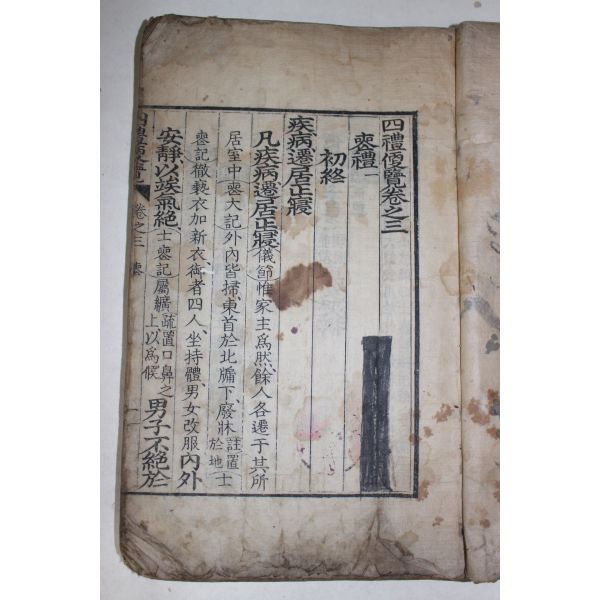 四禮便覽卷之三
喪禮一
初終
疾病遷居正寢
凡疾病遷居正寢儀節惟家主爲然餘人各遷于其所
居室中喪大記外內皆掃東首於北牖下廢牀註置於地士
喪記徹褻衣加新衣御者四人坐持體男女改服內外
安靜以竢氣絶士喪記屬纊疏置口鼻之上以爲候男子不絶於
四禮便覽 卷之三 喪